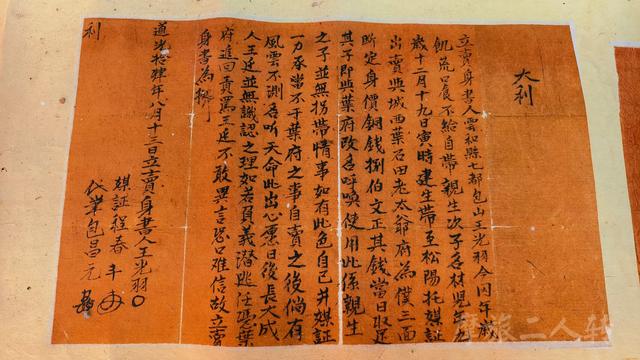 大利
立賣身書人雲和縣七都包山王光羽今因年歲
飢荒口食不給自帶親生次子名林児年九
歲十二月十九日寅時建生帶至松陽托媒証
出賣與城西葉石田老太爺府為僕三面
断定身價銅錢捌伯文正其錢當日收足
其子即與葉府改名呼喚使用此係親生
之子並無拐帶情事如有此色自己并媒証
一力承當不干葉府之事自賣之後倘有
風雲不測各听天命此出心愿日後長大成
人王廷並無識認之理如若負義潛逃任憑葉
府追回責罵王廷不敢異言恐口难信故立賣
身書為據
道光拾肆年八月十三日立賣身書人王光羽〇
媒証程春丰
代筆包昌元
利
摩旅二人转